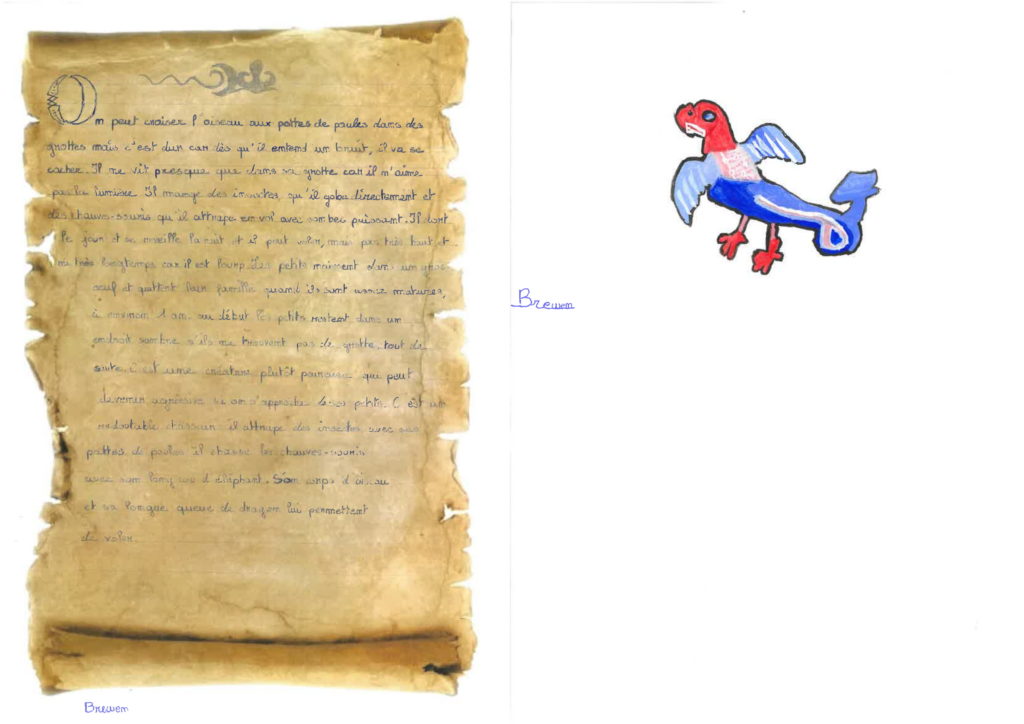 On peut croiser l'oiseau aux pattes de poules dans des
grottes mais c'est dur car dès qu'il entend un bruit, il va se
cacher. Il ne vit presque que dans sa grotte car il n'aime
pas la lumière. Il mange des insectes qu'il gobe directement et
des chauves-souris qu'il attrape en vol avec son bec puissant. Il dort
le jour et se réveille la nuit et il peut voler, mais pas très haut et
ni très longtemps car il est lourd. Les petits naissent dans un gros
oeuf et quittent leur famille quand ils sont assez matures,
à environ 1 an. au début les petits restent dans un
endroit sombre s'ils ne trouvent pas de grotte, tout de
suite. C'est une créature plutôt peureuse qui peut
devenir agressive si on s'approche de ses petits. C'est un
redoutable chasseur il attrape des insectes avec ses
pattes de poules il chasse les chauves-souris
avec son long cou d'éléphant. Son corps d'oiseau
et sa longue queue de dragon lui permettent
de voler.
Brewen
Brewen